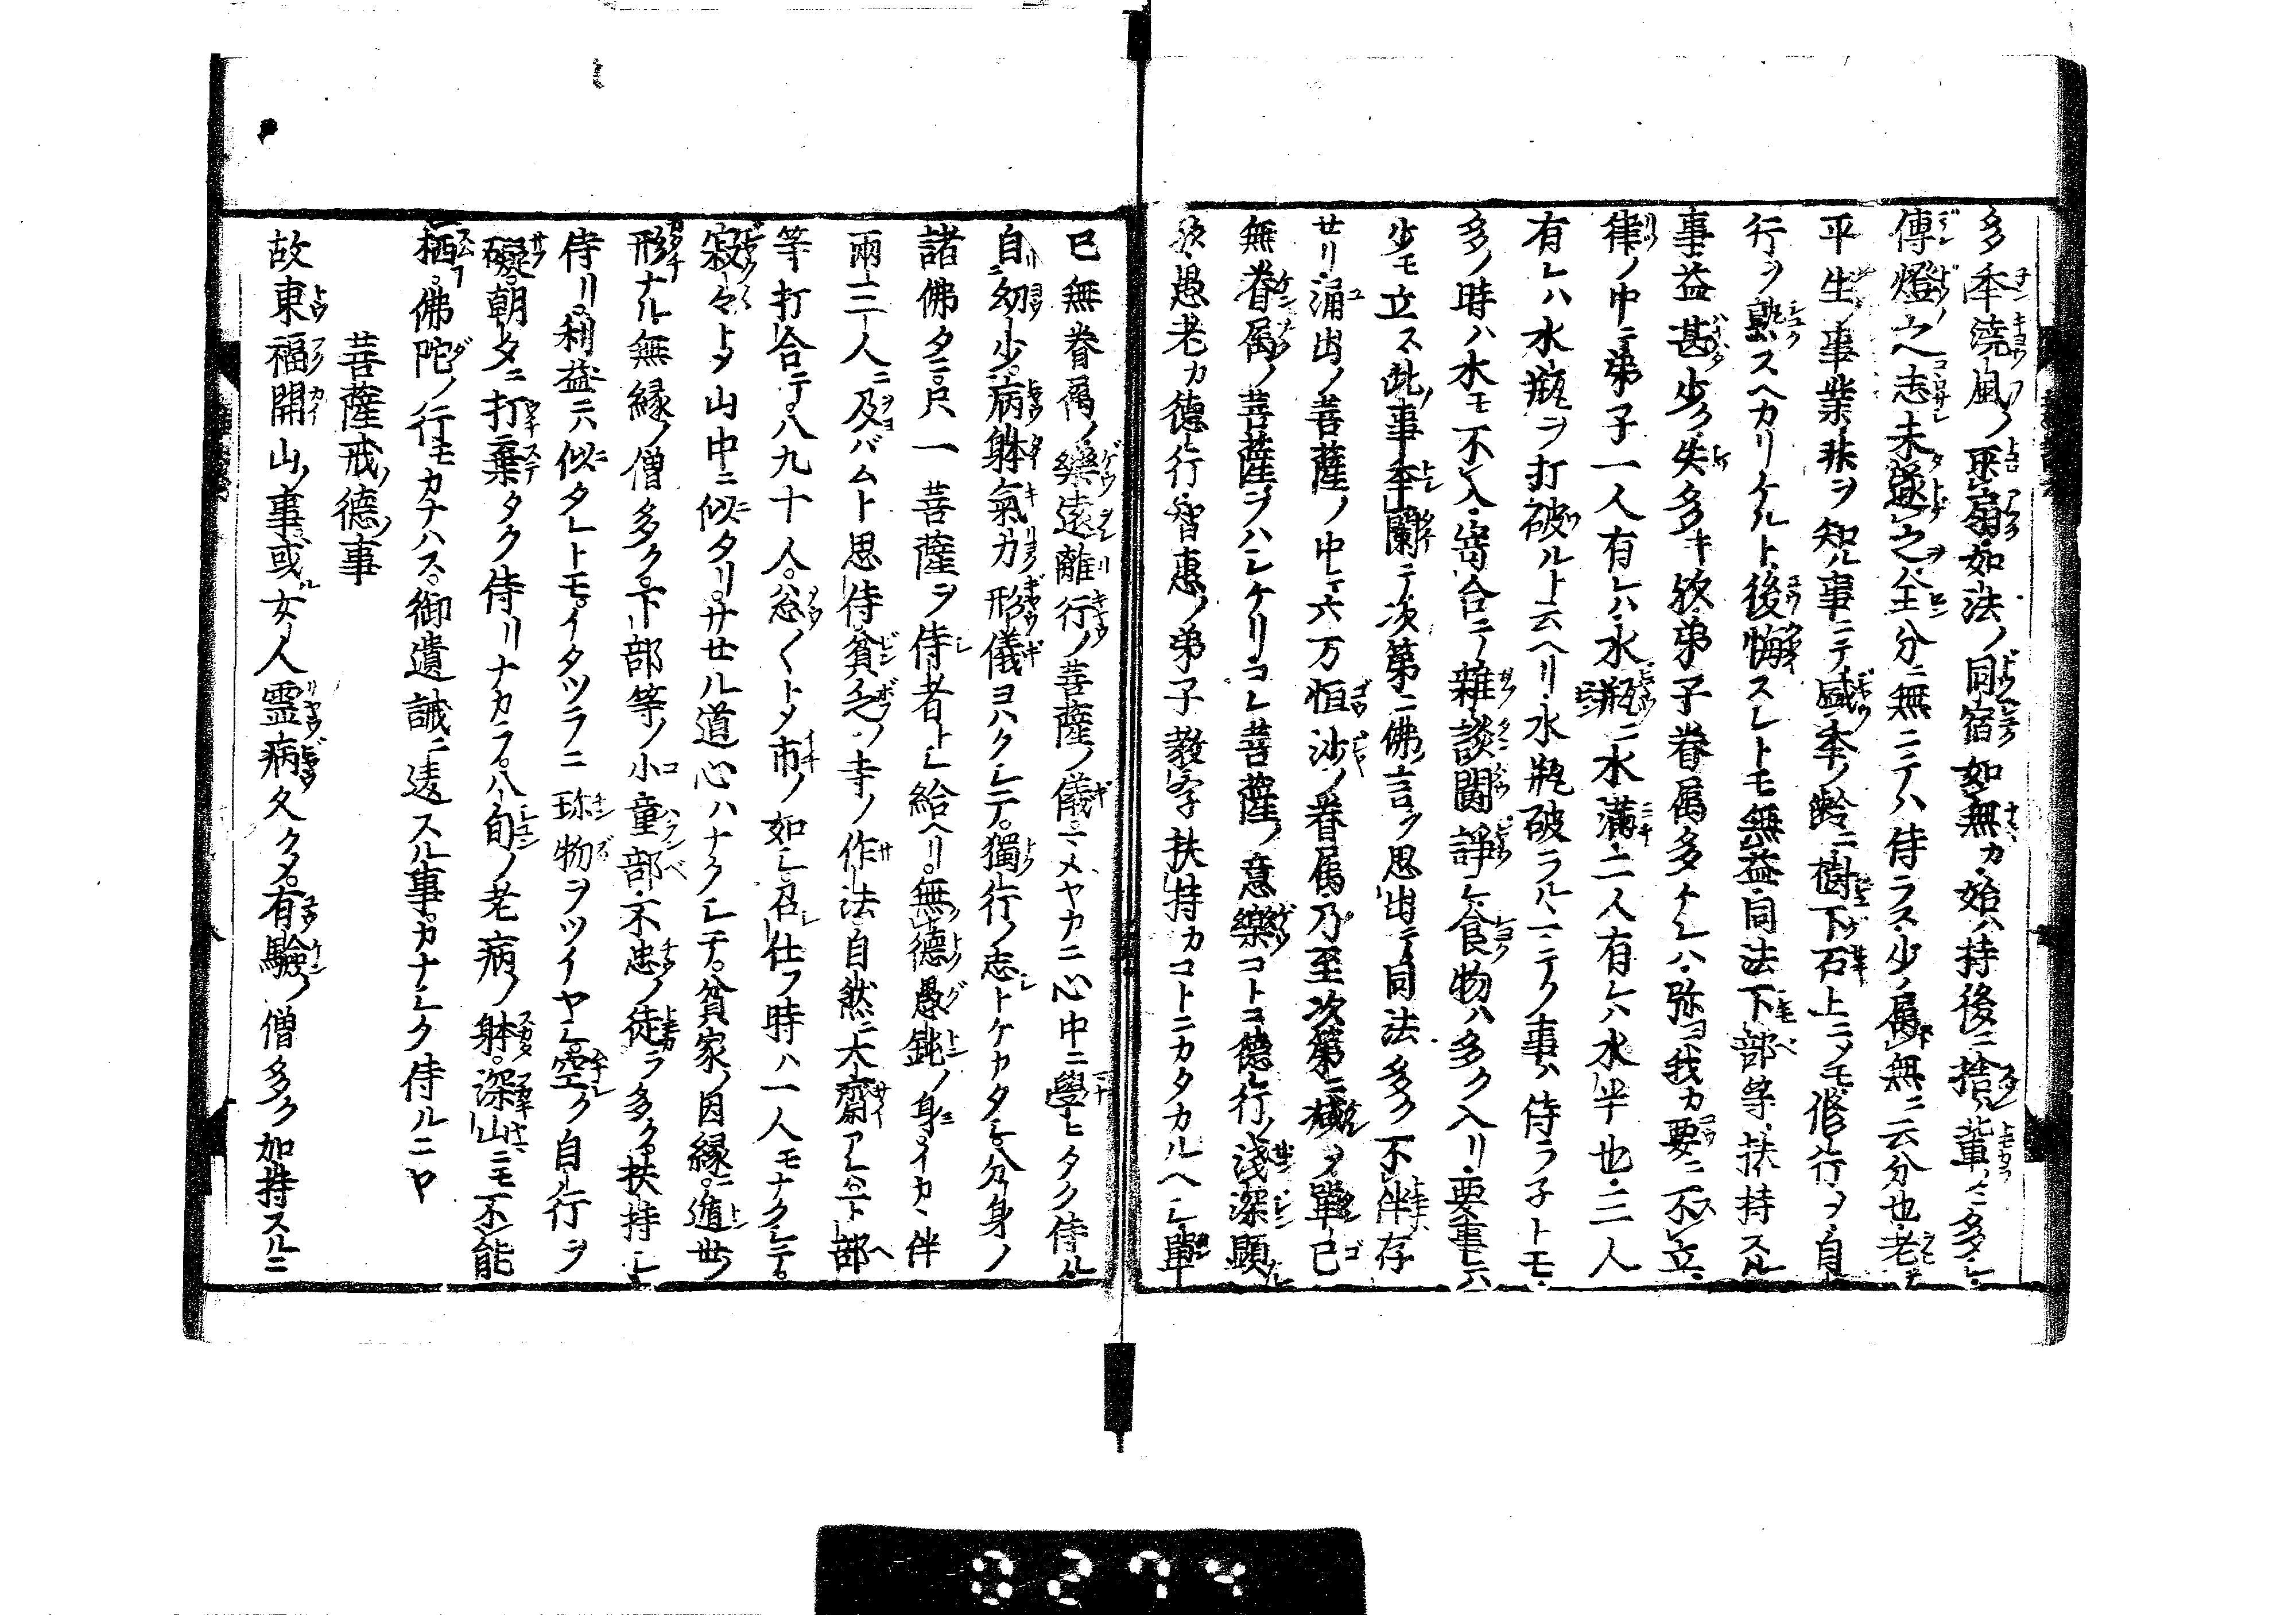 多年澆風ノ巫扇如法ノ同宿如無カ始ハ持後ニ捨ル輩ノミ多シ
傳燈之志未遂之全分ニ無ニテハ侍ラス少ノ属無ニ云分也老
平生ノ事業非ヲ知ル事ニテ盛季ノ齢ニ樹下石上ニメモ修行ヲ自
行ヲ熟スヘカリケルト後悔スレトモ無益同法下部等扶持スル
事益甚少ク失多キ欤弟子眷属多ケレハ弥ヨ我カ要ニ不立
律ノ中ニ弟子一人有レハ水瓶ニ水満二人有レハ水半也三人
有レハ水瓶ヲ打破ルト云ヘリ水瓶破ラルヽニテノ事ハ侍ラ子トモ
多ノ時ハ水モ不入寄合テ雑談闘諍シ食物ハ多ク入リ要事ニハ
少モ立ス此事季闌テ次第ニ佛言ヲ思出テ同法多ク不伴存
セリ涌出ノ菩薩ノ中ニ六万恒沙ノ眷属乃至次第ニ減メ單己
無眷属ノ菩薩ヲハシケリコレ菩薩ノ意樂コトコ德行ノ浅深顕
欤愚老カ德行智惠ノ弟子教ヘ扶持カコトニカタカルヘシ單
已無眷属ノ樂遠離行ノ菩薩ノ儀ニメヤカニ心中ニ學ヒタク侍ル
自幼少病躰氣力形儀ヨハクシテ獨行ノ志トケカタシ分身ノ
諸佛タニ只一菩薩ヲ侍者トシ給ヘリ無德愚鈍ノ身イカヽ伴
兩三人ニ及バムト思侍貧乏ノ寺ノ作法自然ニ大齋アレハ下部
等打合テ八九十人忩〱トメ市ノ如シ召仕フ時ハ一人モナクシテ
寂々トメ山中ニ似タリサセル道心ハナクシテ貧家ノ因縁ニ遁世ノ
形ナル無縁ノ僧多ク下部等ノ小童部不忠ノ徒ラ多ク扶持シ
侍リ利益ニ似タレトモイタツラニ珎物ヲツイヤシ空ク自行ヲ
礙朝タニ打棄タク侍リナカラ八旬ノ老病ノ躰深山ニモ不能
栖佛陀ノ行モカナハス御遺誡ニ違スル事カナシク侍ルニヤ
菩薩戒ノ德ノ事
故東福開山ノ事或ル女人霊病久クメ有驗ノ僧多ク加持スルニ